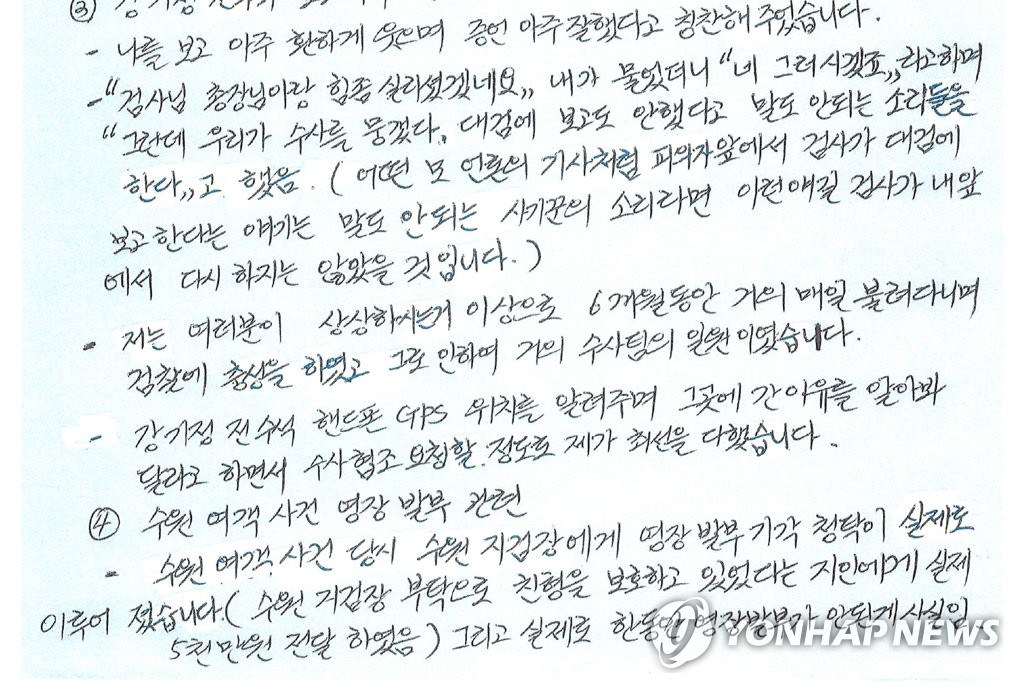 ③ 강기정
- 나를 보고 아주 환하게 웃으며 증언 아주 잘했다고 칭찬해 주었습니다.
- "검사님 총장님이랑 힘좀 실리셨겠네요,, 내가 물었더니 "네 그러시겠죠,, 라고하며
"그란데 우리가 수사를 뭉갰다, 대검에 보고도 안했다고 말도 안되는 소리들을
한다,,고 했음. (어떤 모 언론의 기사처럼 피의자앞에서 검사가 대검에
보고한다는 얘기는 말도 안되는 사기꾼의 소리라면 이런얘길 검사가 내앞
에서 다시 하지는 않았을 것입니다.)
- 저는 여러분이 상상하시는거 이상으로 6개월동안 거의 매일 불려다니며
검찰에 출상을 하였고 그로 인하여 거의 수사팀의 일원이였습니다.
- 강기정 전수석 핸드폰 GPS 위치를 알려주며 그곳에 간 이유를 알아봐
달라고 하면서 수사협조 요청할 정도로 제가 최선을 다했습니다.
④ 수원 여객 사건 영장 발부 관련
- 수원 여객 사건 당시 수원 지검장에게 영장발부 기각 청탁이 실제로
이루어 졌습니다. (수원 지검장 부탁으로 친형을 보호하고 있었다는 지인에게 실제
5천만원 전달 하였음) 그리고 실제로 한동안 영장발부가 안된게 사실임.
YONHAP NEWS